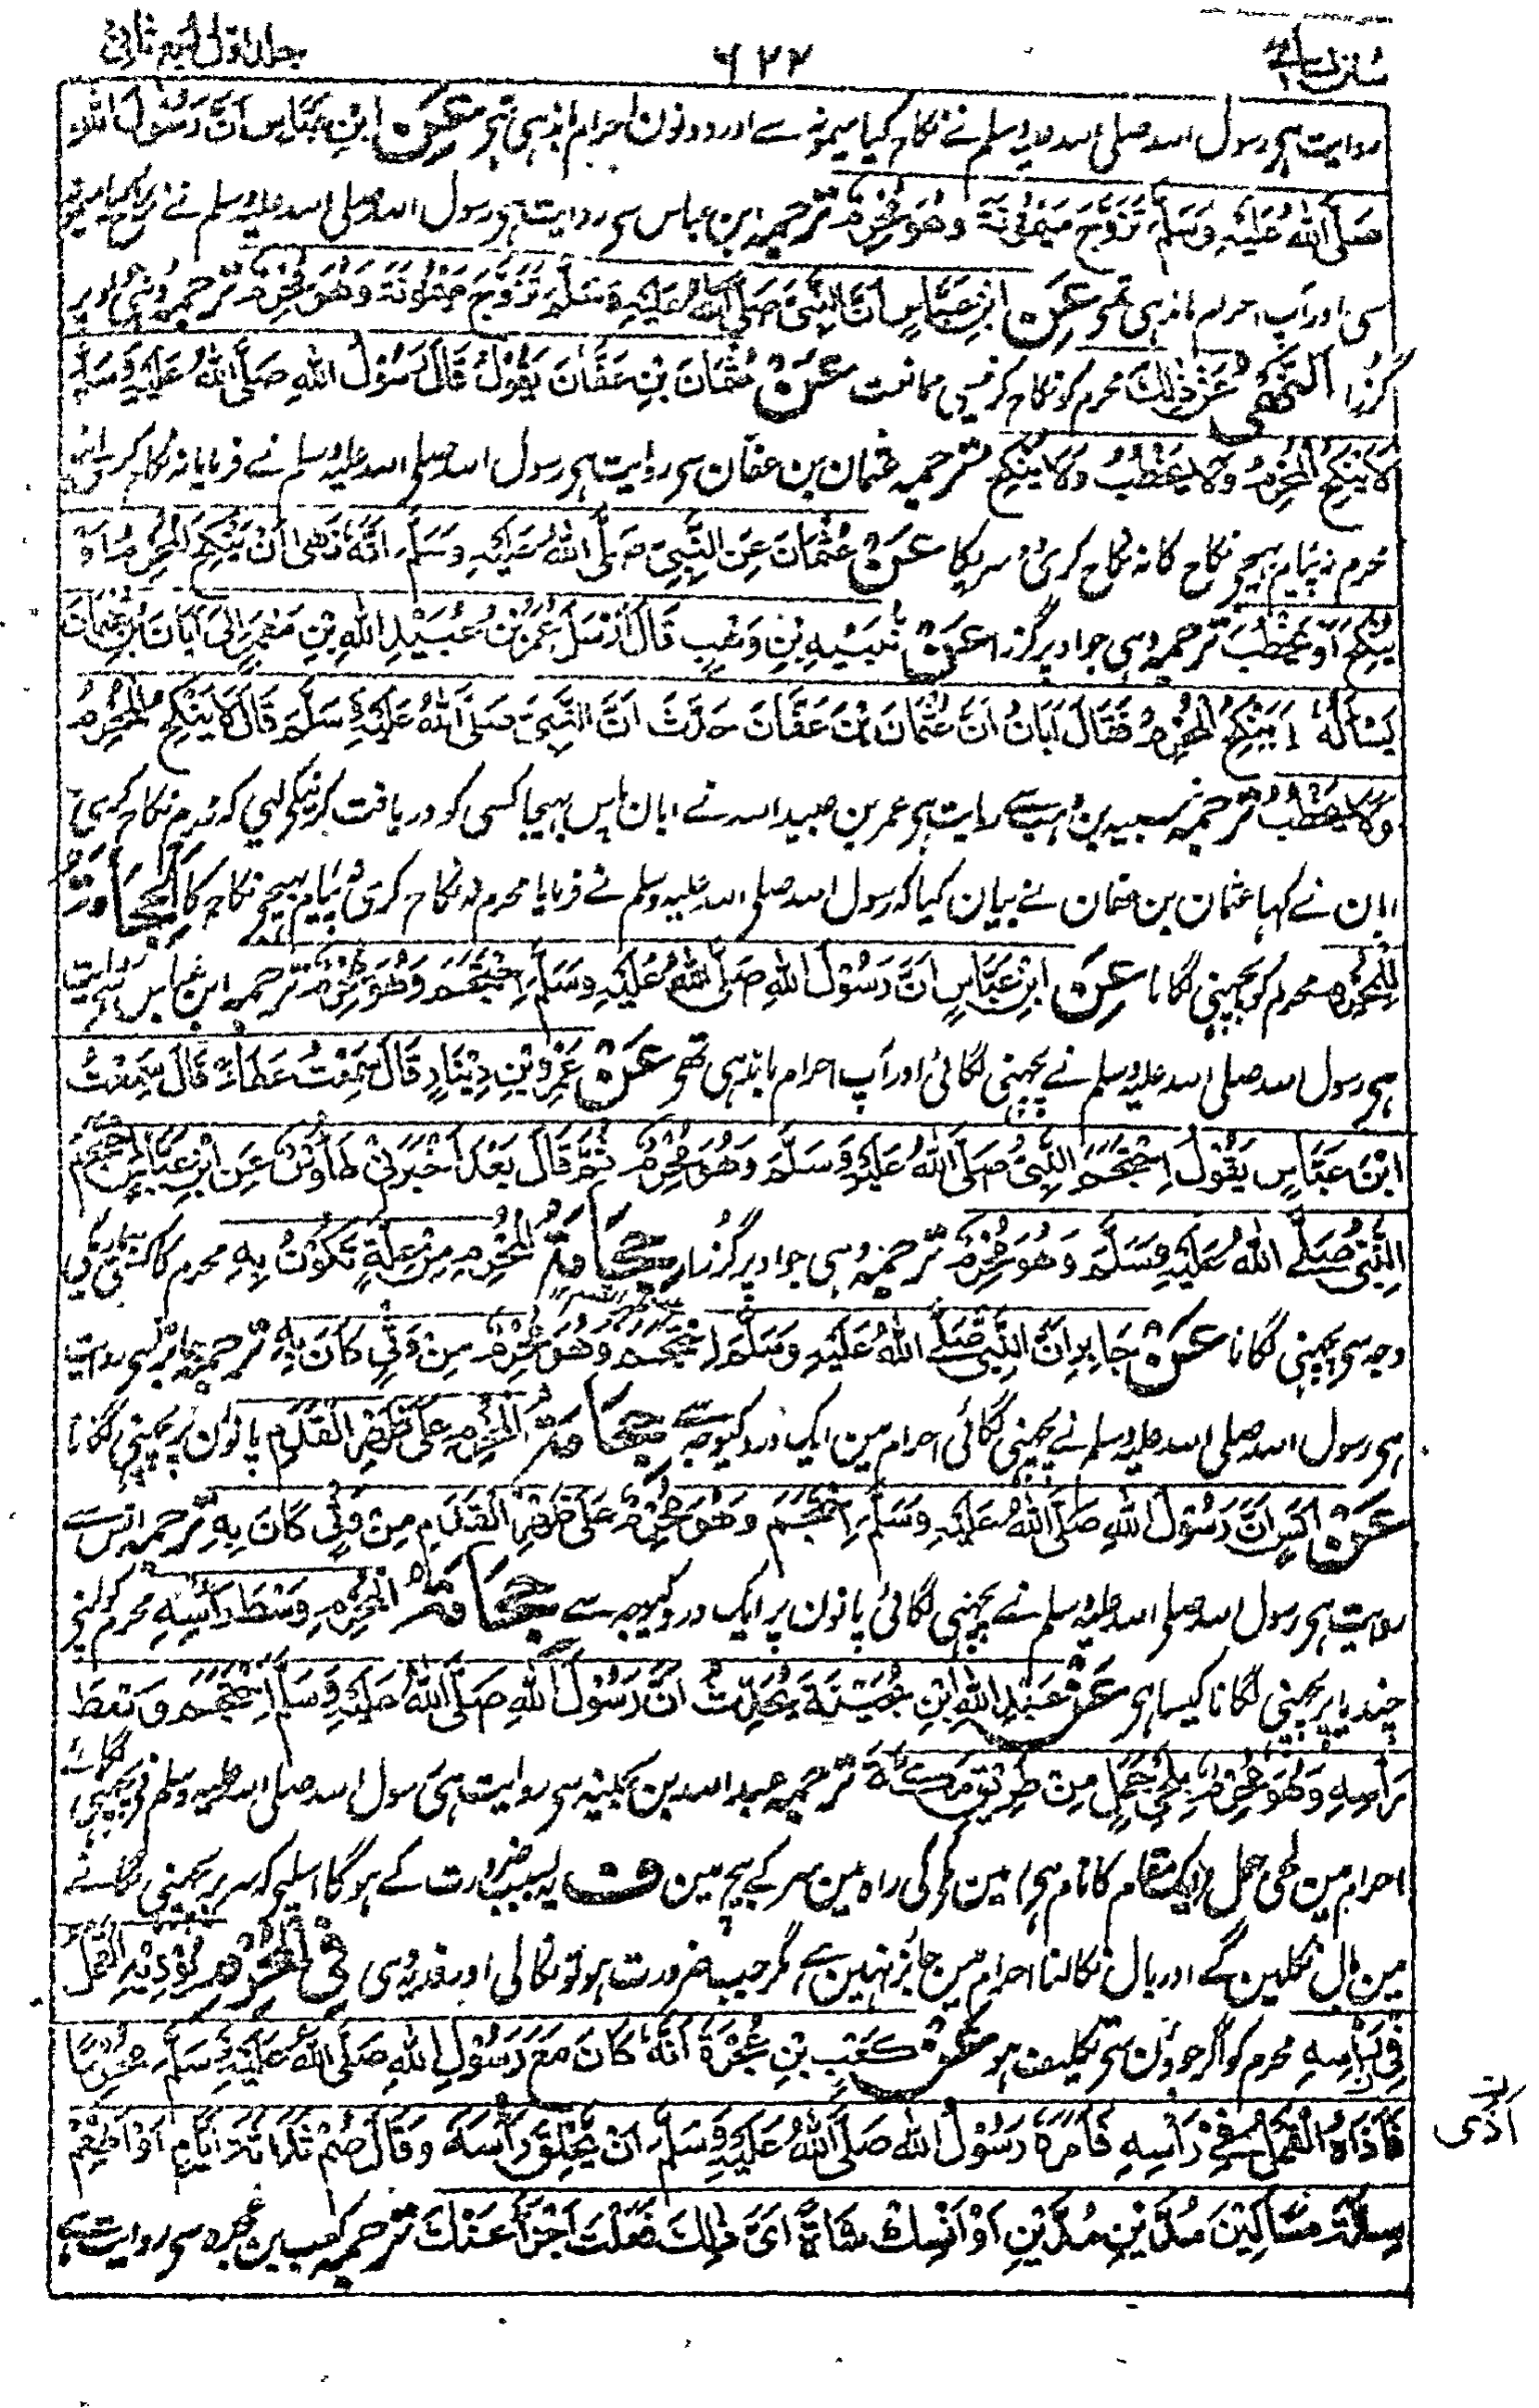 سنن نسائی ۶۲۲ جلد اول
روایت ہی رسول اللہ صلی اللہ علیہ وسلم نے نکاح کیا میمونہ سے اور دونون احرام باندہی تہی عَنِ ابْنِ عَبَّاسٍ اَنَّ رَسُوْلَ اللّٰهِ
صَلَّى اللّٰهُ عَلَيْهِ وَسَلَّمَ تَزَوَّجَ مَيْمُوْنَةَ وَهُوَ مُحْرِمٌ ترجمہ ابن عباس سی روایت ہی رسول اللہ صلی اللہ علیہ وسلم نے نکاح کیا میمونہ
سی اور آپ احرام باندہی تہی عَنِ ابْنِ عَبَّاسٍ اَنَّ النَّبِيَّ صَلَّى اللّٰهُ عَلَيْهِ وَسَلَّمَ تَزَوَّجَ مَيْمُوْنَةَ وَهُوَ مُحْرِمٌ ترجمہ وہی جو اوپر
گزرا النَّهْىُ عَنْ ذٰلِكَ محرم کو نکاح کرنیسی ممانعت عَنْ عُثْمَانَ بْنِ عَفَّانَ يَقُوْلُ قَالَ رَسُوْلُ اللّٰهِ صَلَّى اللّٰهُ عَلَيْهِ وَسَلَّمَ
لَا يَنْكِحُ الْمُحْرِمُ وَلَا يَخْطُبُ وَلَا يُنْكِحُ ترجمہ عثمان بن عفان سی روایت ہی رسول اللہ صلی اللہ علیہ وسلم نے فرمایا نہ نکاح کری اپنا
محرم نہ پیام بہیجی نکاح کا نہ نکاح کری دوسریکا عَنْ عُثْمَانَ عَنِ النَّبِيِّ صَلَّى اللّٰهُ عَلَيْهِ وَسَلَّمَ اَنَّهُ نَهٰى اَنْ يَنْكِحَ الْمُحْرِمُ اَوْ
يُنْكِحَ اَوْ يَخْطُبَ ترجمہ وہی جو اوپر گزرا عَنْ نُبَيْهِ بْنِ وَهْبٍ قَالَ اَرْسَلَ عُمَرُ بْنُ عُبَيْدِ اللّٰهِ بْنِ مَعْمَرٍ اِلٰى اَبَانَ بْنِ عُثْمَانَ
يَسْأَلُهُ اَيَنْكِحُ الْمُحْرِمُ فَقَالَ اَبَانُ اَنَّ عُثْمَانَ بْنَ عَفَّانَ حَدَّثَ اَنَّ النَّبِيَّ صَلَّى اللّٰهُ عَلَيْهِ وَسَلَّمَ قَالَ لَا يَنْكِحُ الْمُحْرِمُ
وَلَا يَخْطُبُ ترجمہ نبیہ بن وہب سے روایت ہی عمر بن عبید اللہ نے ابان پاس بہیجا کسی کو دریافت کرنیکی لیی کہ محرم نکاح کری
ابان نے کہا عثمان بن عفان نے بیان کیا کہ رسول اللہ صلی اللہ علیہ وسلم نے فرمایا محرم نہ نکاح کری نہ پیام بہیجی نکاح کا اَلْحِجَامَةُ
لِلْمُحْرِمِ محرم کو پچہنی لگانا عَنِ ابْنِ عَبَّاسٍ اَنَّ رَسُوْلَ اللّٰهِ صَلَّى اللّٰهُ عَلَيْهِ وَسَلَّمَ اِحْتَجَمَ وَهُوَ مُحْرِمٌ ترجمہ ابن عباس سی روایت
ہی رسول اللہ صلی اللہ علیہ وسلم نے پچہنی لگائی اور آپ احرام باندہی تہی عَنْ عَمْرِو بْنِ دِيْنَارٍ قَالَ سَمِعْتُ عَطَاءً قَالَ سَمِعْتُ
ابْنَ عَبَّاسٍ يَقُوْلُ اِحْتَجَمَ النَّبِيُّ صَلَّى اللّٰهُ عَلَيْهِ وَسَلَّمَ وَهُوَ مُحْرِمٌ ثُمَّ قَالَ بَعْدُ اَخْبَرَنِيْ طَاوُسٌ عَنِ ابْنِ عَبَّاسٍ احْتَجَمَ
النَّبِيُّ صَلَّى اللّٰهُ عَلَيْهِ وَسَلَّمَ وَهُوَ مُحْرِمٌ ترجمہ وہی جو اوپر گزرا حِجَامَةُ الْمُحْرِمِ مِنْ عِلَّةٍ تَكُوْنُ بِهِ محرم کا کسی بیماری کی
وجہ سی پچہنی لگانا عَنْ جَابِرٍ اَنَّ النَّبِيَّ صَلَّى اللّٰهُ عَلَيْهِ وَسَلَّمَ احْتَجَمَ وَهُوَ مُحْرِمٌ مِنْ وَثْيٍ كَانَ بِهِ ترجمہ جابر سی روایت
ہی رسول اللہ صلی اللہ علیہ وسلم نے پچہنی لگائی احرام مین ایک درد کیوجہ سے حِجَامَةُ الْمُحْرِمِ عَلٰى ظَهْرِ الْقَدَمِ پانون پر پچہنی لگانا
عَنْ اَنَسٍ اَنَّ رَسُوْلَ اللّٰهِ صَلَّى اللّٰهُ عَلَيْهِ وَسَلَّمَ احْتَجَمَ وَهُوَ مُحْرِمٌ عَلٰى ظَهْرِ الْقَدَمِ مِنْ وَثْيٍ كَانَ بِهِ ترجمہ انس سے
روایت ہی رسول اللہ صلی اللہ علیہ وسلم نے پچہنی لگائی پانون پر ایک درد کیوجہ سے حِجَامَةُ الْمُحْرِمِ وَسَطَ رَأْسِهِ محرم کو اپنی
چندیا پر پچہنی لگانا کیسا ہی عَنْ عَبْدِ اللّٰهِ ابْنِ بُحَيْنَةَ يُحَدِّثُ اَنَّ رَسُوْلَ اللّٰهِ صَلَّى اللّٰهُ عَلَيْهِ وَسَلَّمَ احْتَجَمَ وَسَطَ
رَأْسِهِ وَهُوَ مُحْرِمٌ بِلَحْيِ جَمَلٍ مِنْ طَرِيْقِ مَكَّةَ ترجمہ عبد اللہ بن بحینہ سی روایت ہی رسول اللہ صلی اللہ علیہ وسلم نی پچہنی لگائے
احرام مین لحی جمل (ایک مقام کا نام ہی) مین مکہ کی راہ مین سر کے بیچ مین ف یہ بسبب ضرورت کے ہوگا اسلیی کہ سر پر پچہنی لگانے
مین بال نکلین گے اور بال نکالنا احرام مین جائز نہین ہے مگر جب ضرورت ہو تو نکالی اور فدیہ دی فِى الْمُحْرِمِ يُؤْذِيْهِ الْقَمْلُ
فِيْ رَأْسِهِ محرم کو اگر جوؤن سی تکلیف ہو عَنْ كَعْبِ بْنِ عُجْرَةَ اَنَّهُ كَانَ مَعَ رَسُوْلِ اللّٰهِ صَلَّى اللّٰهُ عَلَيْهِ وَسَلَّمَ مُحْرِمًا
فَاٰذَاهُ الْقَمْلُ فِيْ رَأْسِهِ فَاَمَرَهُ رَسُوْلُ اللّٰهِ صَلَّى اللّٰهُ عَلَيْهِ وَسَلَّمَ اَنْ يَحْلِقَ رَأْسَهُ وَقَالَ صُمْ ثَلَاثَةَ اَيَّامٍ اَوْ اَطْعِمْ
اَذًى
سِتَّةَ مَسَاكِيْنَ مُدَّيْنِ مُدَّيْنِ اَوِ انْسُكْ شَاةً اَىَّ ذٰلِكَ فَعَلْتَ اَجْزَأَ عَنْكَ ترجمہ کعب بن عجرہ سی روایت ہے